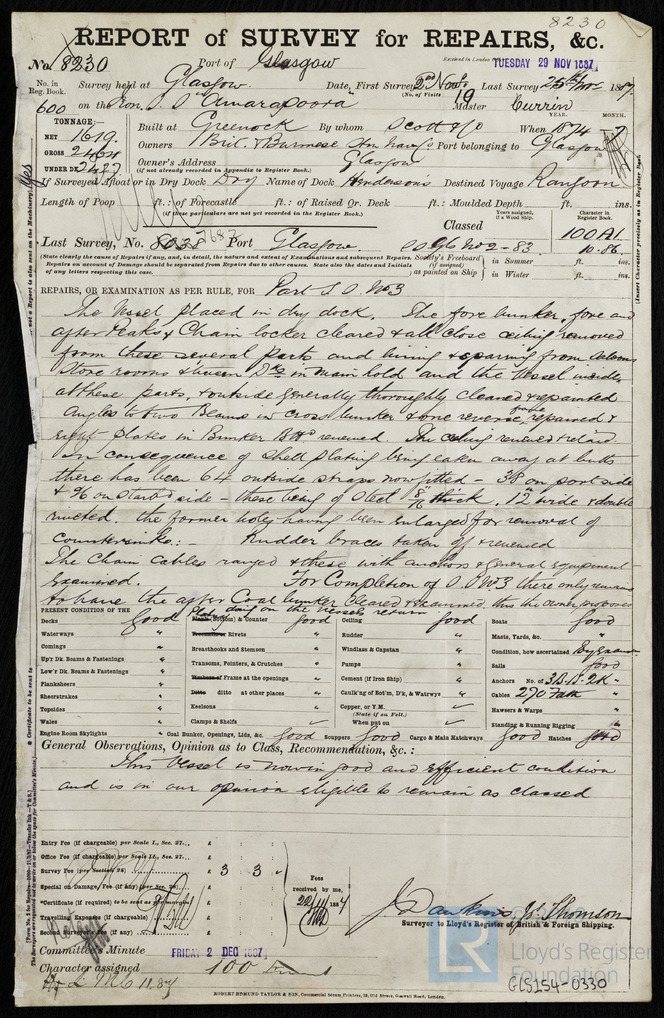 8230
REPORT of SURVEY for REPAIRS, &c.
No. 8230 Port of Glasgow Received in London TUESDAY 29 NOV 1887
No. in Reg. Book. Survey held at Glasgow Date, First Survey 2nd Nov Last Survey 25th Nov 1887
(No. of Visits 19)
600 on the Iron S.S "Amarapoora" Master Currin
TONNAGE:— YEAR. MONTH.
NET 1619 Built at Greenock By whom Scott & Co When 1874 7
GROSS 2464 Owners Brit. & Burmese Stm Navg Co Port belonging to Glasgow
UNDER DK 2427 Owner's Address Glasgow
(if not already recorded in Appendix to Register Book.)
If Surveyed Afloat or in Dry Dock Dry Name of Dock Henderson's Destined Voyage Rangoon
Length of Poop ft.: of Forecastle ft.: of Raised Qr. Deck ft.: Moulded Depth ft. ins.
(if these particulars are not yet recorded in the Register Book.)
Years assigned, if a Wood Ship. Character in Register Book.
Classed 100A1
Last Survey, No. 8038 7687 Port Glasgow SS Gls No 2-83 10.86
(State clearly the cause of Repairs, if any, and, in detail, the nature and extent of Examinations and subsequent Repairs.
Repairs on account of Damage should be separated from Repairs due to other causes. State also the dates and Initials
of any letters respecting this case.)
Society's Freeboard (if assigned) as painted on Ship in Summer ft. ins.
in Winter ft. ins.
REPAIRS, OR EXAMINATION AS PER RULE, FOR Part S.S. No 3
The Vessel placed in dry dock. The fore bunker, fore and
after Peaks & Chain locker cleared & all close ceiling removed
from these several parts and lining & sparring from
Store rooms & tween Dks in main hold and the Vessel inside
at these parts, & outside generally thoroughly cleaned & repainted
angles to two Beams in cross bunker & one reverse frame repaired &
eight plates in Bunker Bhd renewed. The ceiling renewed & relaid.
In consequence of shell plating being eaten away at butts
there has been 64 outside straps now fitted – 38 on port side
& 26 on Starbd side – these being of Steel 8/16 thick, 12 wide & double
riveted. the former holes having been enlarged for removal of
countersinks:– Rudder braces taken off & renewed
The Chain Cables ranged & these with anchors & general equipment
Examined. For Completion of S.S. No 3 there only remains
to have the after Coal bunker cleared & examined, this the owner proposes
doing on the Vessels return
PRESENT CONDITION OF THE
Decks Good
Waterways "
Comings "
Up'r Dk. Beams & Fastenings "
Low'r Dk. Beams & Fastenings "
Planksheers "
Sheerstrakes "
Topsides "
Wales "
Engine Room Skylights "
Plank (Bottom) & Counter good
Treenails or Rivets "
Breasthooks and Stemson "
Transoms, Pointers, & Crutches "
Timbers of Frame at the openings "
Ditto ditto at other places "
Keelsons "
Clamps & Shelfs
Coal Bunker, Openings, Lids, &c. Good
Scuppers Good
Ceiling good
Rudder "
Windlass & Capstan "
Pumps "
Cement (if Iron Ship) "
Caulk'ng of Bot'm, D'k, & Watrwys "
Copper, or Y.M.
(State if on Felt.)
When put on
Cargo & Main Hatchways Good
Boats Good
Masts, Yards, &c. "
Condition, how ascertained By Exam
Sails Good
Anchors No. of 3B.1S.2K "
Cables 270 Fath "
Hawsers & Warps "
Standing & Running Rigging "
Hatches Good
General Observations, Opinion as to Class, Recommendation, &c. :
This Vessel is now in good and efficient condition
and is in our opinion eligible to remain as classed
Entry Fee (if chargeable) per Scale I., Sec. 27... £
Office Fee (if chargeable) per Scale II., Sec. 27... £
Survey Fee (per Section 28) £ 3 3
Special on Damage Fee (if any) (per Sec. 28) £
*Certificate (if required) to be sent as per margin £
Travelling Expenses (if chargeable) £
Second Surveyor's Fee (if any) £
Fees received by me,
Surveyor to Lloyd's Register of British & Foreign Shipping.
Committee's Minute FRIDAY 2 DEC 1887
Character assigned 100
L.M.C 11.87
ROBERT EDMUND TAYLOR & SON, Commercial Steam Printers, 19, Old Street, Goswell Road, London.
LR Lloyd's Register
Foundation
GLS154-0330